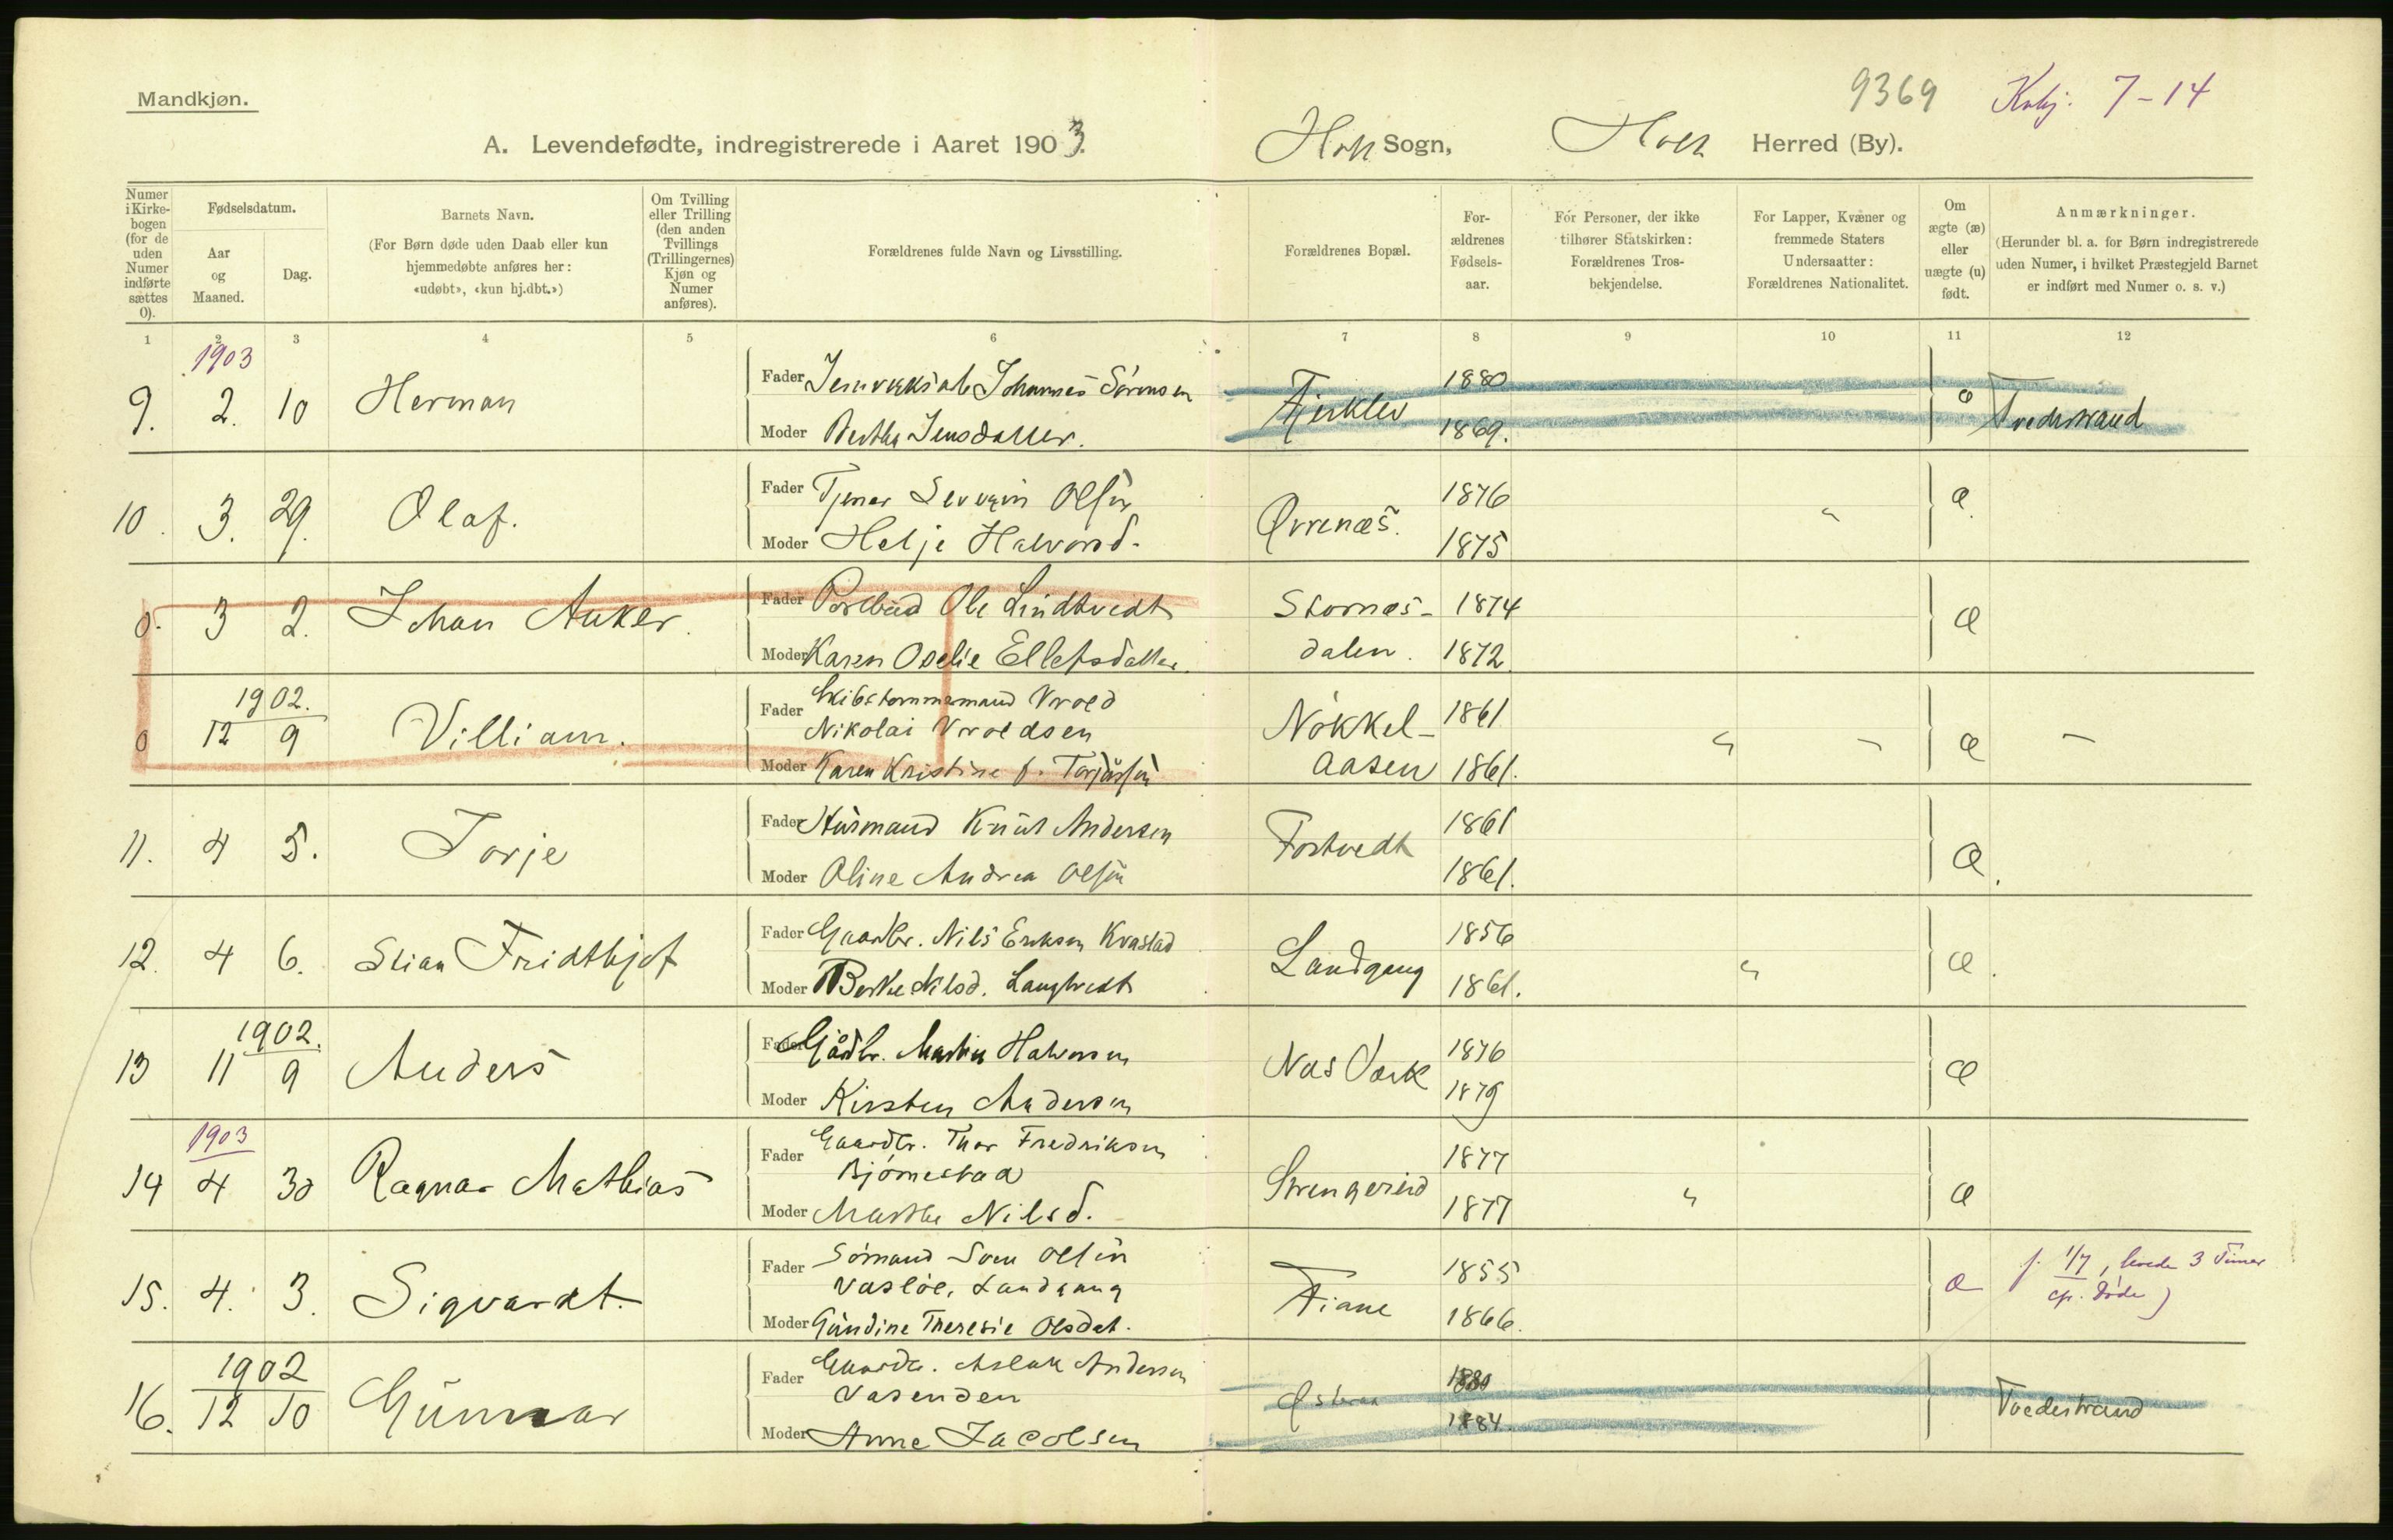 Mandkjøn.
9369 7-14
A. Levendefødte, indregistrerede i Aaret 1903.
Holt Sogn, Holt Herred (By).
Numer i Kirkebogen (for de uden Numer indførte sættes 0).
Fødselsdatum.
Aar og Maaned.
Dag.
Barnets Navn.
(For Børn døde uden Daab eller kun hjemmedøbte anføres her: «udøbt», «kun hj.dbt.»)
Om Tvilling eller Trilling (den anden Tvillings (Trillingernes) Kjøn og Numer anføres).
Forældrenes fulde Navn og Livsstilling.
Forældrenes Bopæl.
Forældrenes Fødselsaar.
For Personer, der ikke tilhører Statskirken: Forældrenes Trosbekjendelse.
For Lapper, Kvæner og fremmede Staters Undersaatter: Forældrenes Nationalitet.
Om ægte (æ) eller uægte (u) født.
Anmærkninger.
(Herunder bl. a. for Børn indregistrerede uden Numer, i hvilket Præstegjeld Barnet er indført med Numer o. s. v.)
1 2 3 4 5 6 7 8 9 10 11 12
1903
9. 2. 10 Herman Fader Johannes Sörensen 1880 æ Tvedestrand
Moder Berthe Jensdatter. 1869.
10. 3. 29. Olaf. Fader Tjener Severin Olsen Øvrenæs. 1876 " æ
Moder Helje Halvorsd. 1875
0. 3 2. Johan Anker. Fader Postbud Ole Lindtvedt Stornæs- 1874 æ
Moder Karen Oselie Ellefsdatter. dalen. 1872
1902.
0 12 9 Villiam. Fader Skibstømmermand Vrold Nökkel- 1861 " - æ -
Nikolai Vroldsen
Moder Karen Kristine f. Torjussen aasen 1861.
11. 4 5. Torje Fader Husmand Knut Andersen Fostvedt 1861 æ.
Moder Oline Andrea Olsen 1861.
12. 4 6. Stian Fridthjof Fader Gaardbr. Nils Eriksen Kvastad Landgang 1856 " æ.
Moder Berthe Nilsd. Langtvedt 1861.
1902.
13 11 9 Anders Fader Gårdbr. Martin Halvorsen Næs Værk 1876 æ
Moder Kirsten Andersen 1879
1903
14 4 30 Ragnar Mathias Fader Gaardbr. Thor Fredriksen 1877 " æ
Bjørnestad
Moder Marthe Nilsd. 1877
15. 4. 3. Sigvardt. Fader Sömand Sven Olsen Fiane 1855 æ f. 1/7, levede 3 Timer
Vaslöe, Landgang ep. döde)
Moder Gundine Theresie Olsdat. 1866.
1902
16. 12 10 Gunnar Fader Gaardbr. Aslak Andersen 1880 Tvedestrand
Vasenden
Moder Anne Jacobsen 1884.